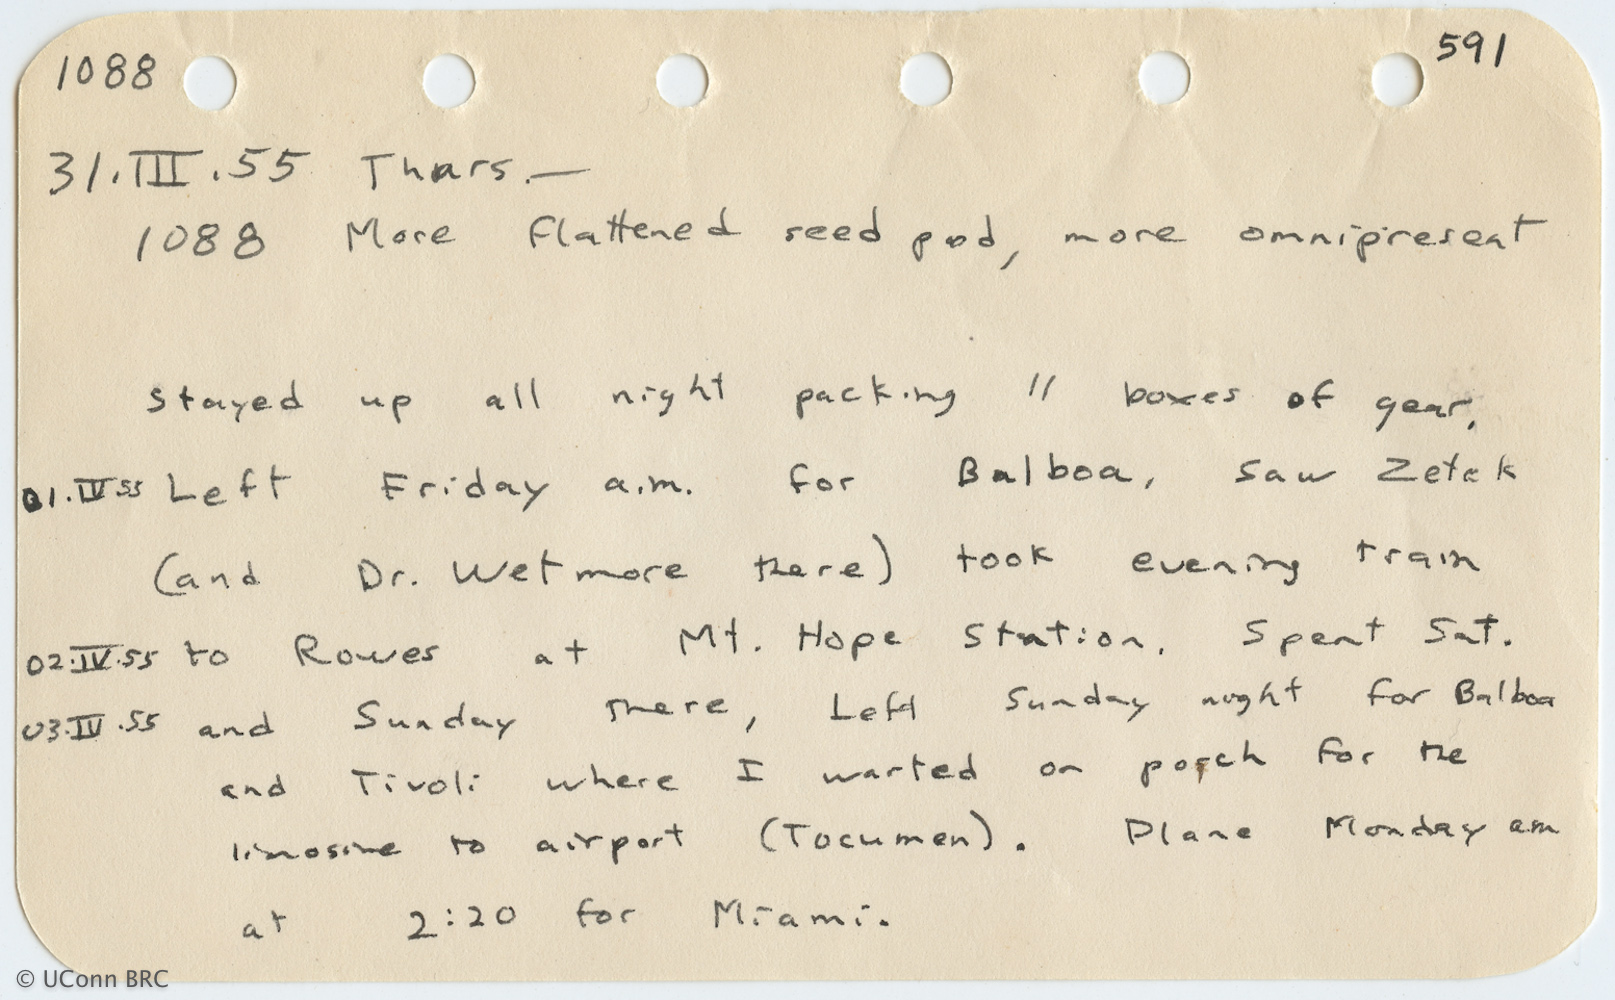 1088 591
31.III.55 Thurs.—
1088 More flattened seed pod, more omnipresent
stayed up all night packing 11 boxes of gear.
01.IV 55 Left Friday a.m. for Balboa, saw Zetek
(and Dr. Wetmore there) took evening train
02.IV.55 to Rowes at Mt. Hope Station. Spent Sat.
03.IV.55 and Sunday there, Left Sunday night for Balboa
and Tivoli where I waited on porch for the
limosine to airport (Tocumen). Plane Monday am
at 2:20 for Miami.
© UConn BRC